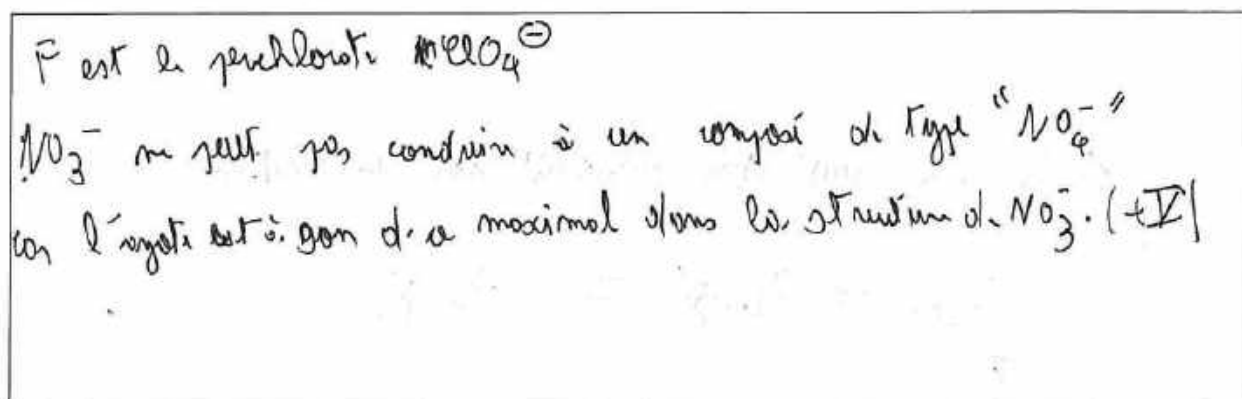 F est le perchlorate ClO₄⊖
NO₃⁻ ne peut pas conduire à un composé de type "NO₄⁻"
car l'azote est à son d.o maximal dans la structure de NO₃⁻. (+V)